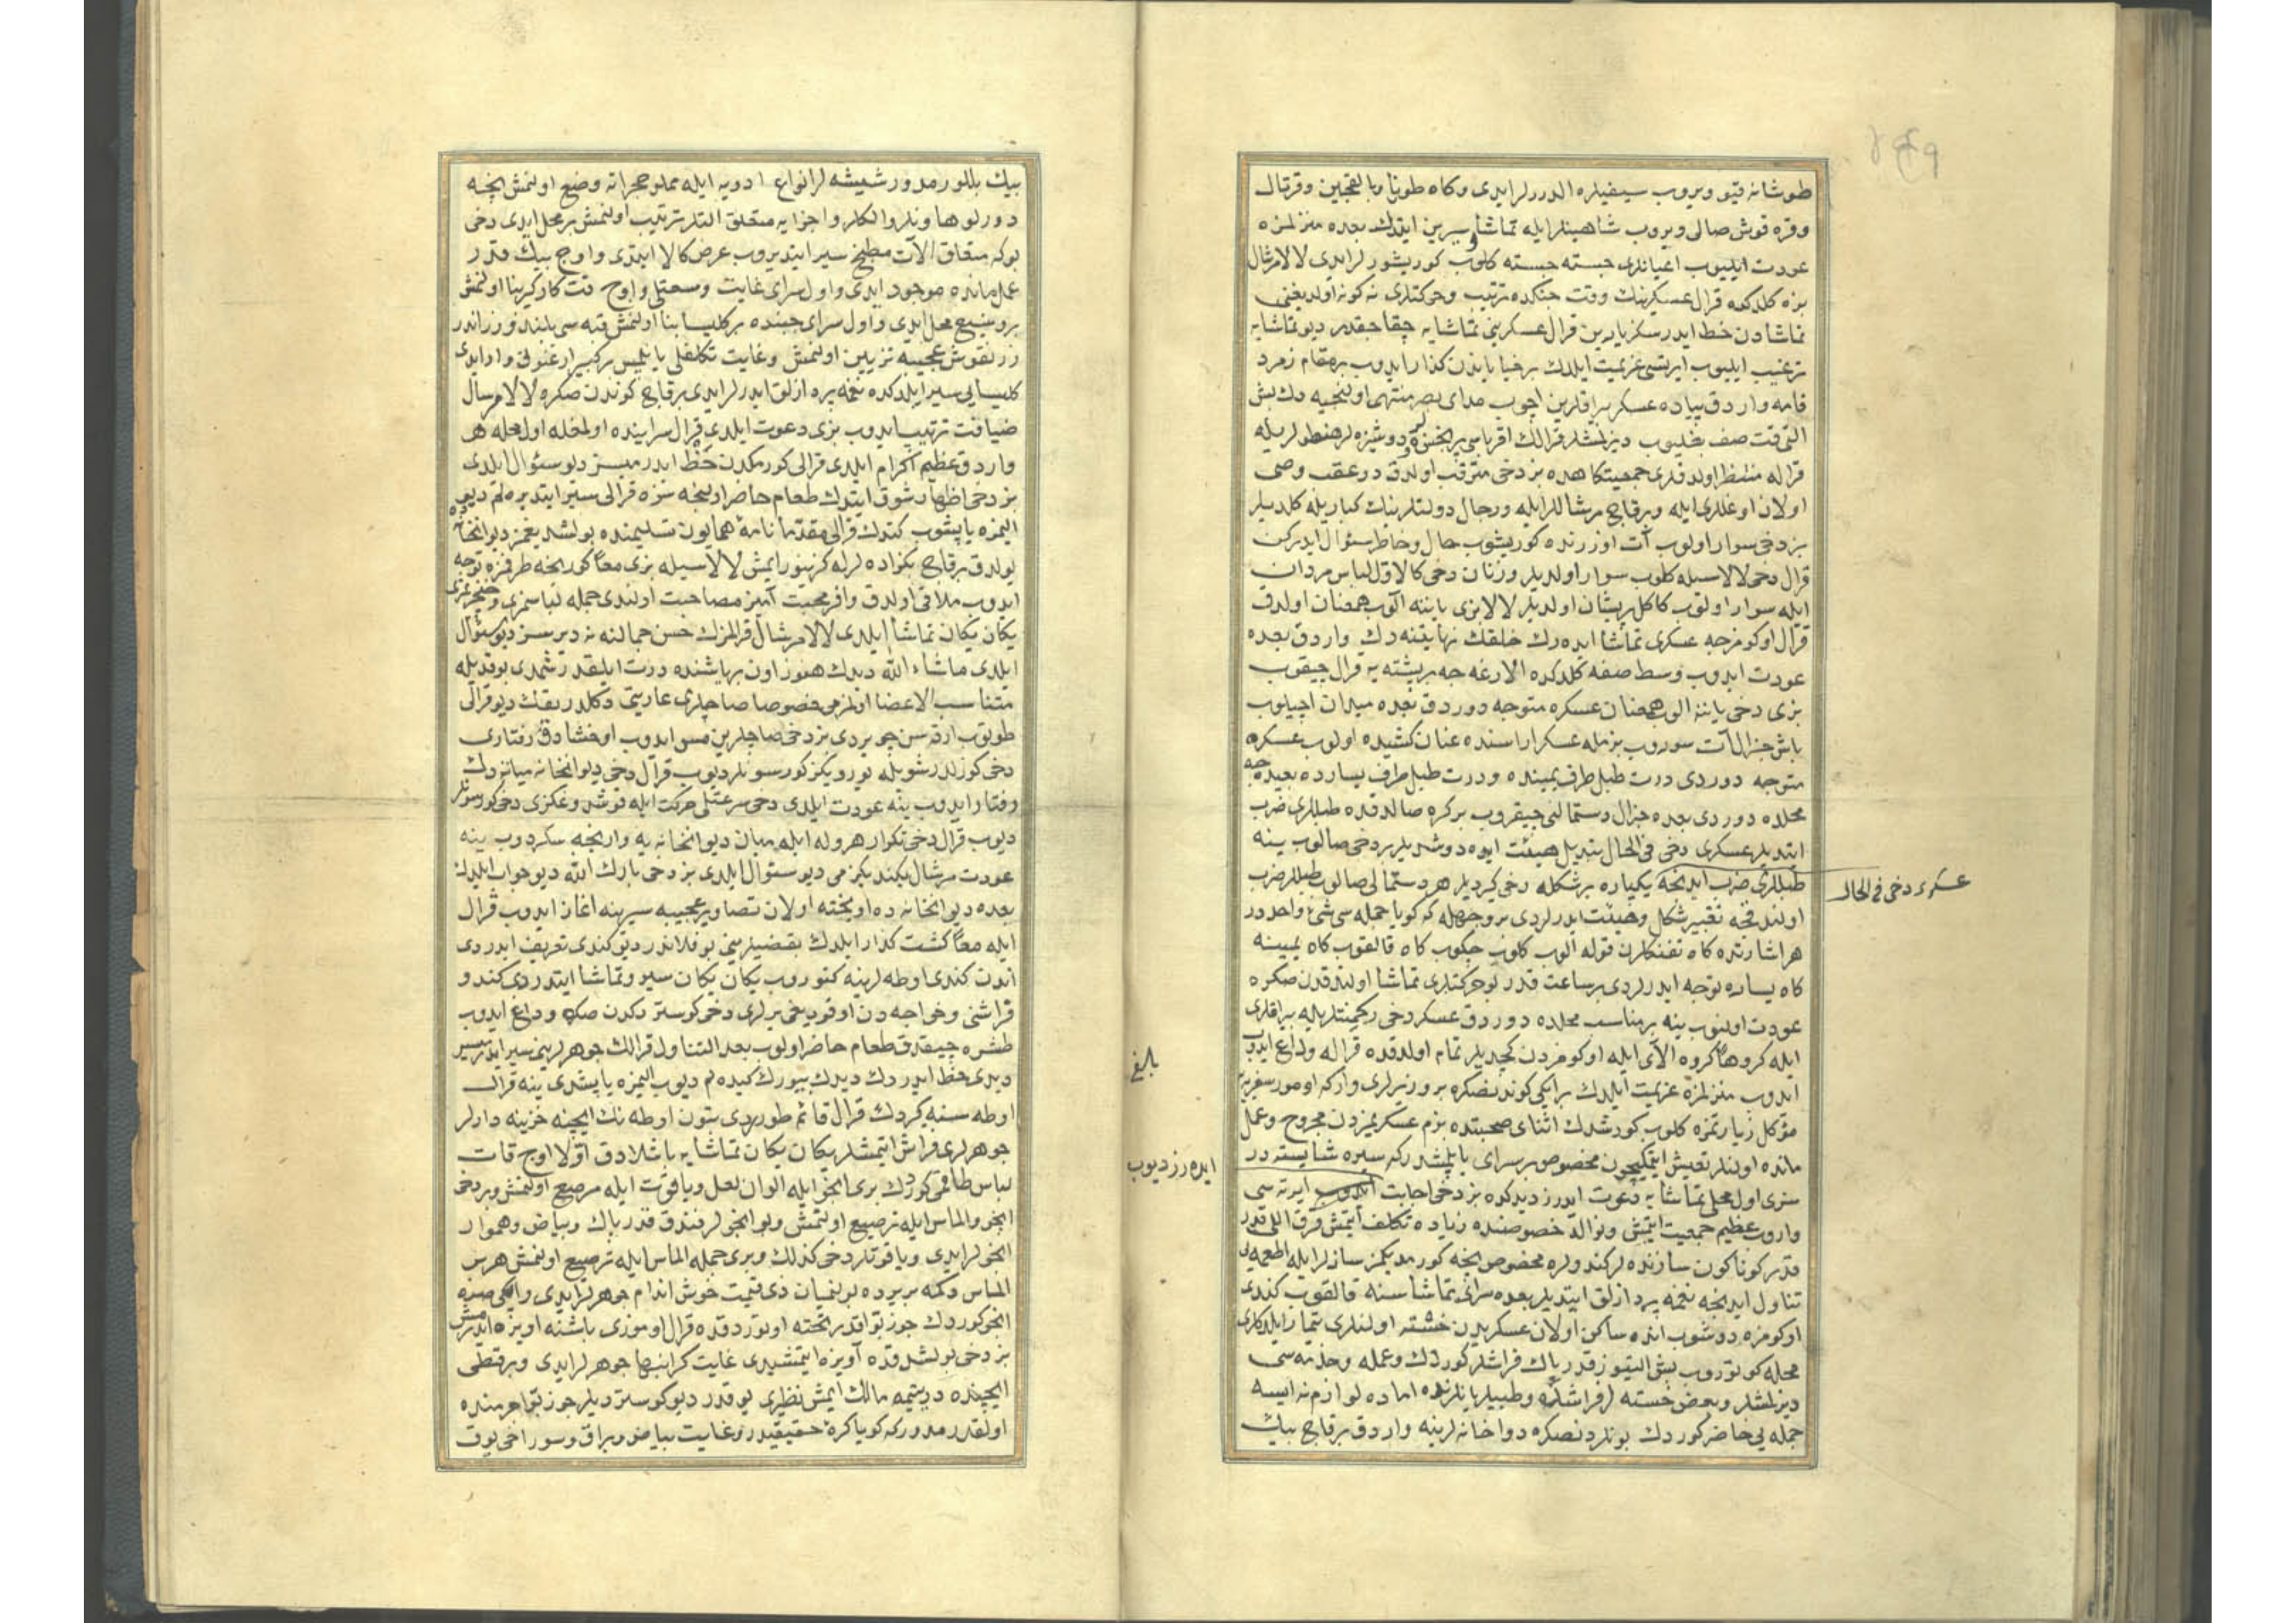 طوشانه قيو ويروب سيفيلره الدررلر ايدى وكاه طونا وبالقجين وقرتال
وقره قوش صالى ويروب شاهينلر ايله تماشا وسيرين ايتدك بعده منزلمزه
عودت ايليوب اعيانلرى جسته جسته كلوب كوريشورلر ايدى لالا مرشال
بزه كلدكده قرال عسكرينك وقت جنكده ترتيب وحركتلرى نه كونه اولديغنى
تماشادن حظ ايدرسكز يارين قرال عسكرينى تماشايه چقاجقدر ديو تماشايه
ترغيب ايليوب ايرتسى عزيمت ايلدك برخياباندن كذار ايدوب بر مقام زمرد
فامه واردق پياده عسكر بيراقلرين اچوب مداى بصر منتهى اولنجيه دك بش
التى قت صف بغليوب ديزلمشلر قرالك اقرباسى
قراله منتظر اولدقلرى جمعيتكاهده بز دخى مترقب اولدق در عقب وصى
اولان اوغللرى ايله وبرقاچ مرشاللر ايله ورجال دولتلرينك كباريله كلديلر
بز دخى سوار اولوب آت اوزرنده كوريشوب حال وخاطر سئوال ايدركن
قرال دخى لالاسيله كلوب سوار اولديلر وزنان دخى كالاول لباس مردان
ايله سوار اولوب كاكل پريشان اولديلر لالا بزى ياننه الوب همعنان اولدق
قرال اوكومزجه عسكرى تماشا ايدەرك خلقك نهايتنه دك واردق بعده
عودت ايدوب وسط صفه كلدكده الارغه جه بر پشته يه قرال چيقوب
بزى دخى ياننه الوب همعنان عسكره متوجه دوردق بعده ميدان اچيلوب
باش جنرال آت سوروب بزمله عسكر اراسنده عنان كشيده اولوب عسكره
متوجه دوردى درت طبل طرف يمينده ودرت طبل طرف يسارده بعيدجه
محلده دوردى بعده جنرال دستمالنى چيقروب بر كره صالدقده طبللرى ضرب
ايتديلر عسكرى دخى فى الحال تبديل هيئت ايوه دوشديلر بر دخى صالوب ينه
طبللرى ضرب ايدنجه يكپاره بر شكله دخى كيرديلر هر دستمالى صالوب طبللر ضرب
عسكرى دخى فى الحال
اولندقجه تغيير شكل وهيئت ايدرلردى بر وجهله كه كويا جمله سى شئ واحددر
هر اشارتده كاه تفنكلرن قوله الوب كلوب چكوب كاه قالقوب كاه يمينه
كاه يساره توجه ايدرلردى بر ساعت قدر بو حركتلرى تماشا اولندقدن صكره
عودت اولنوب ينه بر مناسب محلده دوردق عسكر دخى ركمنتلريله بيراقلرى
ايله كروها كروه الاى ايله اوكومزدن كچديلر تمام اولدقده قراله وداع ايدوب
ايدوب منزلمزه عزيمت ايلدك بر ايكى كوندنصكره بر وزيرلرى واركه امور سفريه
مؤكل زيارتمزه كلوب كورشدك اثناى صحبتده بزم عسكريمزدن مجروح وعمل
مانده اولنلر تعيش ايتمكيچون مخصوص بر سراى ياپلمشدركه سيره شايسته در
سزى اول محلى تماشايه دعوت ايدرز ديدكده بز دخى اجابت ايدوب ايرته سى
ايدەرز ديوب
واروب عظيم جمعيت ايتمش ونوالە خصوصنده زياده تكلف ايتمش قرق اللى قدر
قدر كوناكون سازنده لر كندولره مخصوص نيجه كورمديكمز سازلر ايله اطعمه يى
تناول ايدنجه نغمه پردازلق ايتديلر بعده سراى تماشاسنه قالقوب كندى
اوكومزه دوشوب انده ساكن اولان عسكريدن خسته اولنلرى تيمار ايلدكلرى
محله كوتوروب بش اليتيوز قدر پاك فراشلر كوردك وعمله وخدمه سى
ديزلمشلر وبعض خسته لر فراشلرده وطبيبلر يانلرنده اماده لوازم نه ايسه
جمله يى حاضر كوردك بونلردنصكره دواخانه لرينه واردق برقاچ بيك
بيك بللور مدور شيشه لر انواع ادويه ايله مملو حجراته وضع اولنمش نيجه
دورلو هاونلر والكلر واجزايه متعلق التلر ترتيب اولنمش بر محل ايدى دخى
بوكه متعلق الآت مطبخ سير ايتديروب عرض كالا ايتدى واوچ بيك قدر
عمل مانده موجود ايدى واول سراى غايت وسعتلى واوچ قت كاركير بنا اولنمش
بر وسيع محل ايدى واول سراى جنبنده بر كليسا بنا اولنمش قبه سى بلند وزراندر
زر نقوش عجيبه تزيين اولنمش وغايت تكلفلى ياپلمش بر كبير ارغنون وار ايدى
كليسايى سير ايلدكده نغمه پردازلق ايدرلر ايدى برقاچ كوندن صكره لالا مرشال
ضيافت ترتيب ايدوب بزى دعوت ايلدى قرال سراينده اولمغله اول محله هم
واردق عظيم اكرام ايلدى قرالى كورمكدن حظ ايدرميسز ديو سئوال ايلدى
بز دخى اظهار شوق ايتدك طعام حاضر اولنجه سزه قرالى سير ايتديرەلم ديوب
اليمزه ياپيشوب كتدك قرالى مقدما نامۀ همايون تسليمنده بولشديغمز ديوانخانه ده
بولدق برقاچ بكزاده لرله كزينور ايمش لالاسيله بزى معا كورنجه طرفمزه توجه
ايدوب ملاقى اولدق وافر محبت آميز مصاحبت اولندى جمله لباسمزى وخنجريمزى
يكان يكان تماشا ايلدى لالا مرشال قرالمزك حسن جمالنه نه ديرسز ديو سئوال
ايلدى ماشاء الله ديدك هنوز اون بر ياشنده درت ايلقدر شمدى بو قديله
متناسب الاعضا اولنرمى خصوصا صاچلرى عاريتى دكلدر بقك ديو قرالى
طوتوب ارقه سن چويردى بز دخى صاچلرين مس ايدوب اوخشادق رفتارى
دخى كوزلدر شويله يوريكز كورسونلر ديوب قرال دخى ديوانخانه ميانه دك
رفتار ايدوب ينه عودت ايلدى دخى سرعتلى حركت ايله قوشدوغكزى دخى كورسونلر
ديوب قرال دخى تكرار هروله ايله ميان ديوانخانه يه وارنجه سكردوب ينه
عودت مرشال بكنديكزمى ديو سئوال ايلدى بز دخى بارك الله ديو جواب ايلدك
بعده ديوانخانه ده اويخته اولان تصاوير عجيبه سيرينه اغاز ايدوب قرال
ايله معا كشت كذار ايلدك بعضيلرينى بو فلاندر ديو كندى تعريف ايدردى
اندن كندى اوطه لرينه كتوروب يكان يكان سير وتماشا ايتدردى كندو
فراشنى وخواجه دن اوقوديغى يرلرى دخى كوستردكدن صكره وداع ايدوب
طشره چيقدق طعام حاضر اولوب بعد التناول قرالك جوهرلرينى سير ايدرميسز
ديدى حظ ايدردك ديدك بيورك كيدەلم ديوب اليمزه ياپشدى ينه قرال
بالغ
اوطه سنه كيردك قرال قائم طوردى بتون اوطه نك ايچنه خزينه دارلر
جوهرلرى فراش ايتمشلر يكان يكان تماشايه باشلادق اولا اوچ قات
لباس طاقمى كوردك برى انجو ايله الوان لعل وياقوت ايله مرصع اولنمش وبر دخى
انجو والماس ايله ترصيع اولنمش وبو انجولر فندق قدر پاك وبياض وهموار
انجولر ايدى وياقوتلر دخى كذلك وبرى جمله الماس ايله ترصيع اولنمش هر بر
الماس دكمه بر يرده بولنميان ذى قيمت خوش اندام جوهرلر ايدى وايكى صره
انجو كوردك جوز بوا قدر تخته اوتوردقده قرال اوموزى باشنه اويزه ايدرمش
بز دخى بولشدقده آويزه ايتمشيدى غايت كرانبها جوهرلر ايدى وبر قطى
ايچنده در يتيمه مالك ايمش نظيرى يوقدر ديو كوسترديلر جوز بوا جرمنده
اولقدر مدوركه كويا كره حقيقيدر وغايت بياض وبراق وسوراخى يوق